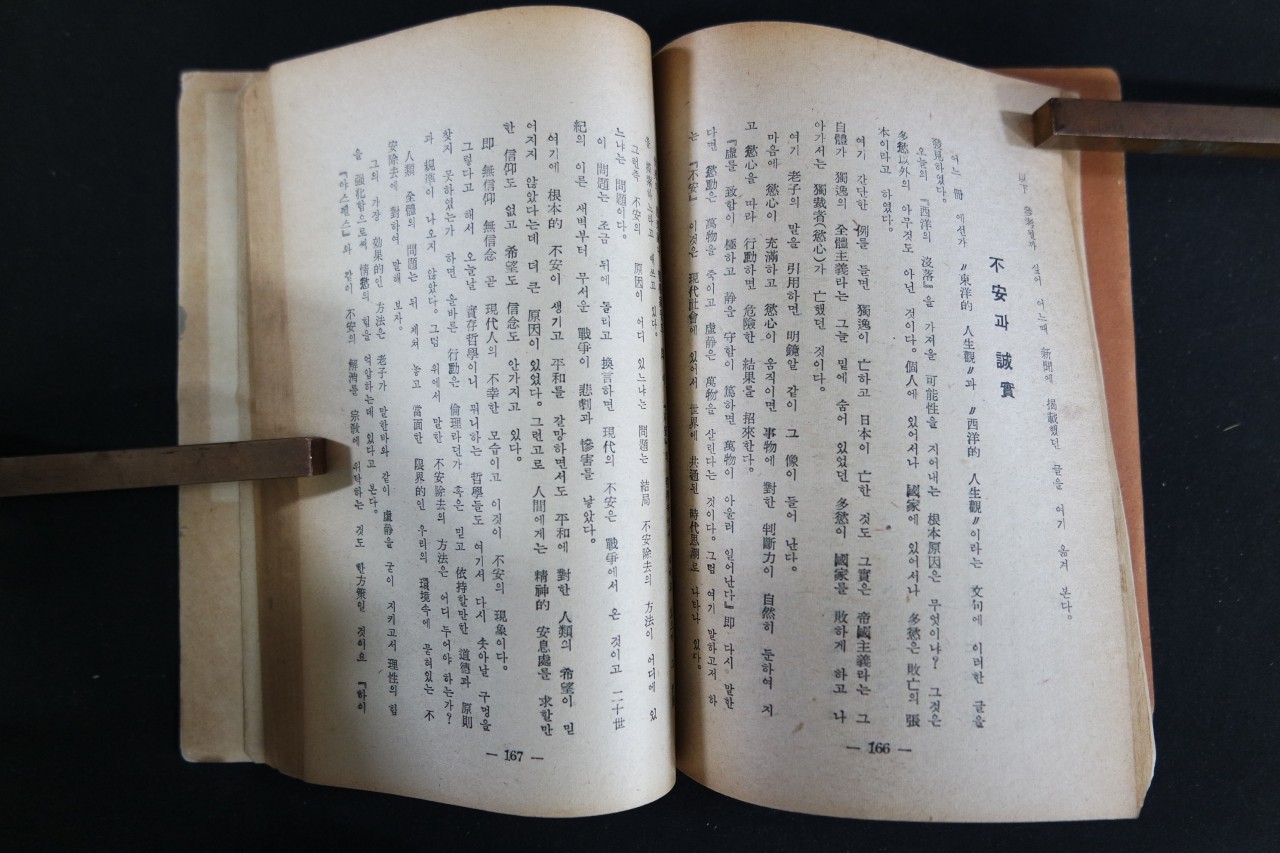 以下 參考될까 싶어 어느때 新聞에 揭載했던 글을 여기 옮겨 본다.
不安과 誠實
어느 冊 에선가 〃東洋的 人生觀〃과 〃西洋的 人生觀〃이라는 文句에 이러한 글을
發見하였다.
오늘의 『西洋의 沒落』을 가져올 可能性을 지어내는 根本原因은 무엇이냐? 그것은
多慾以外의 아무것도 아닌 것이다. 個人에 있어서나 國家에 있어서나 多慾은 敗亡의 張
本이라고 하였다.
여기 간단한 例를 들면 獨逸이 亡하고 日本이 亡한 것도 그實은 帝國主義라는 그
自體가 獨逸의 全體主義라는 그늘 밑에 숨어 있었던 多慾이 國家를 敗하게 하고 나
아가서는 獨裁者(慾心)가 亡했던 것이다.
여기 老子의 말을 引用하면 明鏡알 같이 그 像이 들어 난다.
마음에 慾心이 充滿하고 慾心이 움직이면 事物에 對한 判斷力이 自然히 둔하여 지
고 慾心을 따라 行動하면 危險한 結果를 招來한다.
『虛를 致함이 極하고 静을 守함이 篤하면 萬物이 아울러 일어난다』即 다시 말한
다면 慾動은 萬物을 죽이고 虛静은 萬物을 살린다는 것이다. 그럼 여기 말하고저 하
는 『不安』 이것은 現代社會에 있어서 世界에 共通된 時代思潮로 나타나 있다.
애쓰고 있다.
그런즉 不安의 原因이 어디 있느냐는 問題는 結局 不安除去의 方法이 어디에 있
느냐는 問題이다.
이 問題는 조금 뒤에 돌리고 換言하면 現代의 不安은 戰爭에서 온 것이고 二十世
紀의 이른 새벽부터 무서운 戰爭이 悲劇과 慘害를 낳았다.
여기에 根本的 不安이 생기고 平和를 갈망하면서도 平和에 對한 人類의 希望이 믿
어지지 않았다는데 더 큰 原因이 있었다. 그런고로 人間에게는 精神的 安息處를 求할만
한 信仰도 없고 希望도 信念도 안가지고 있다.
即 無信仰 無信念 곧 現代人의 不幸한 모습이고 이것이 不安의 現象이다.
그렇다고 해서 오늘날 實存哲學이니 뭐니하는 哲學들도 여기서 다시 솟아날 구멍을
찾지 못하였는가 하면 올바른 行動은 倫理라던가 혹은 믿고 依持할만한 道德과 原則
과 規準이 나오지 않았다. 그럼 위에서 말한 不安除去의 方法은 어디 두어야 하는가?
人類 全體의 問題는 뒤 제쳐 놓고 當面한 限界的인 우리의 環境속에 묻혀있는 不
安除去에 對하여 말해 보자.
그의 가장 効果的인 方法은 老子가 말한바와 같이 虛静을 굳이 지키고서 理性의 힘
을 强化함으로써 情慾의 힘을 억압하는데 있다고 본다.
『야스퍼스』와 같이 不安의 解消를 宗敎에 위탁하는 것도 한方策일 것이요 『하이
— 166 —
— 167 —